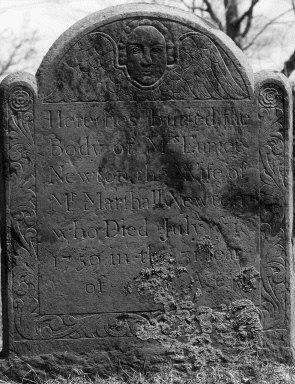 Here lies Buried the
Body of Mrs Eunice
Newton the Wife of
Mr Marshall Newton
who Died July
in the Year
of Age